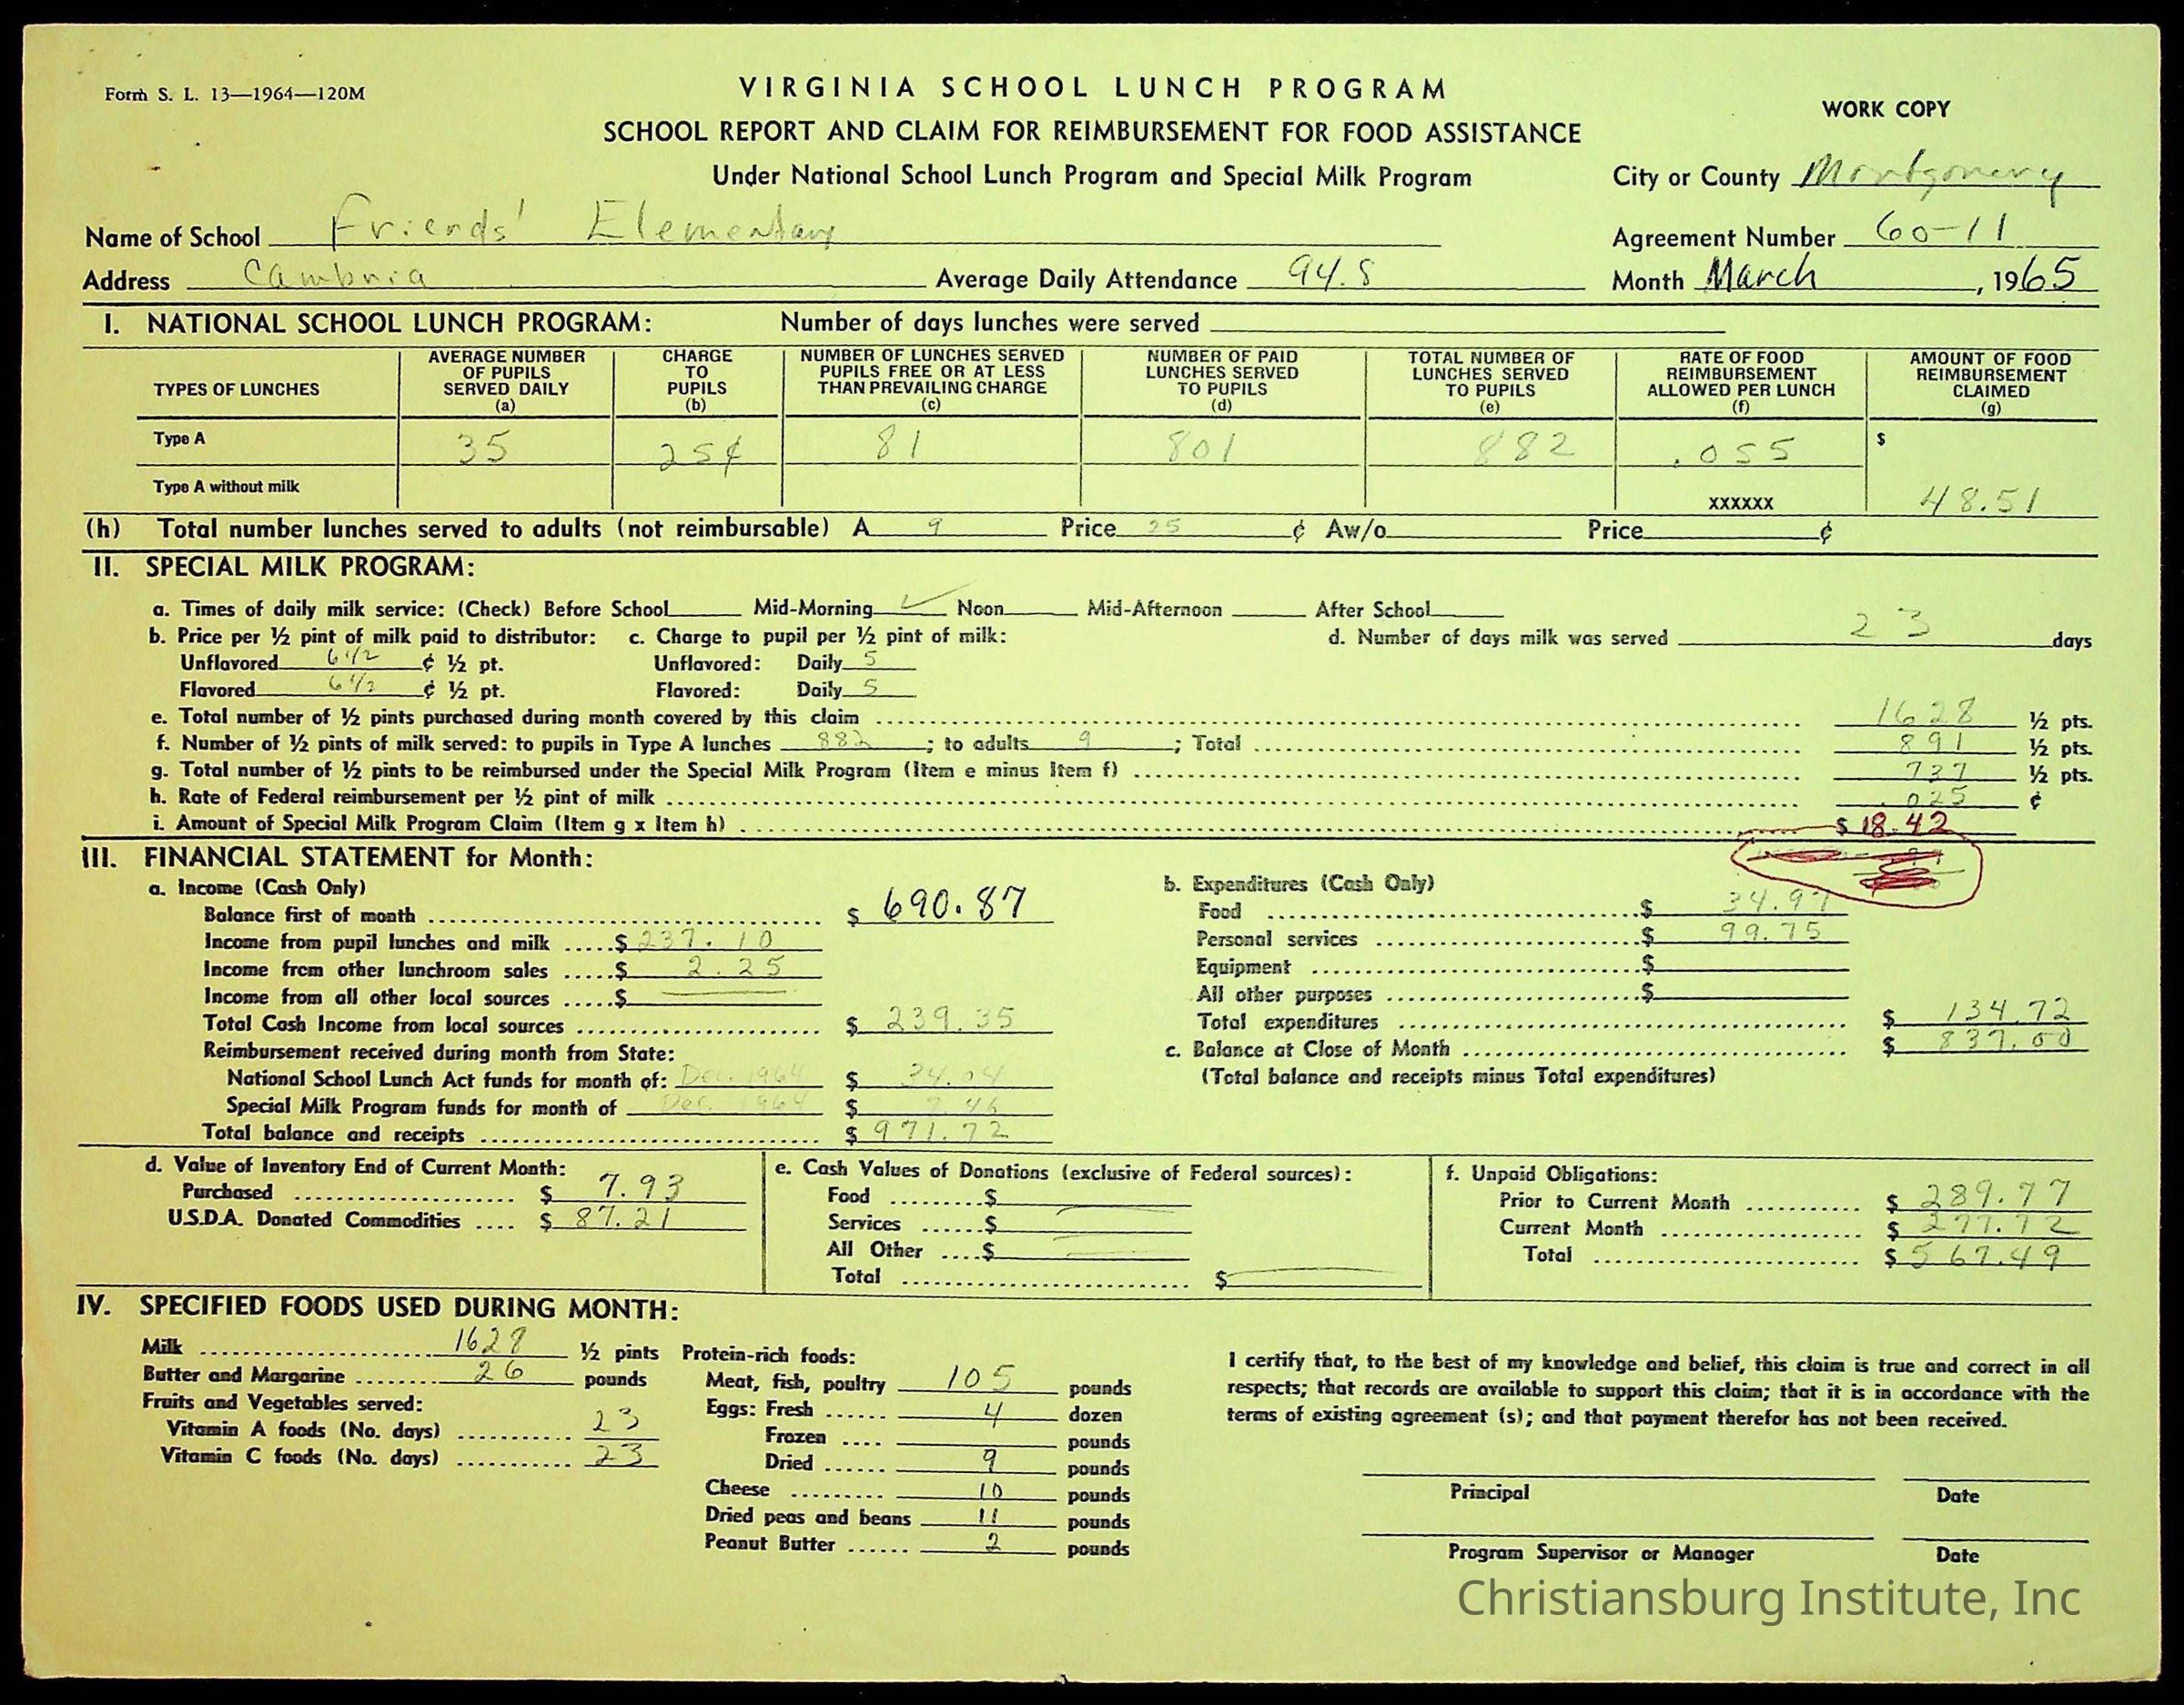 Form S. L. 13—1964—120M
VIRGINIA SCHOOL LUNCH PROGRAM
WORK COPY
SCHOOL REPORT AND CLAIM FOR REIMBURSEMENT FOR FOOD ASSISTANCE
Under National School Lunch Program and Special Milk Program
City or County Montgomery
Name of School Friends' Elementary
Agreement Number 60-11
Address Cambria Average Daily Attendance 94.8
Month March, 1965
I. NATIONAL SCHOOL LUNCH PROGRAM: Number of days lunches were served
TYPES OF LUNCHES
AVERAGE NUMBER OF PUPILS SERVED DAILY (a)
CHARGE TO PUPILS (b)
NUMBER OF LUNCHES SERVED PUPILS FREE OR AT LESS THAN PREVAILING CHARGE (c)
NUMBER OF PAID LUNCHES SERVED TO PUPILS (d)
TOTAL NUMBER OF LUNCHES SERVED TO PUPILS (e)
RATE OF FOOD REIMBURSEMENT ALLOWED PER LUNCH (f)
AMOUNT OF FOOD REIMBURSEMENT CLAIMED (g)
Type A 35 25¢ 81 801 882 .055 $
Type A without milk XXXXXX 48.51
(h) Total number lunches served to adults (not reimbursable) A 9 Price 25 ¢ Aw/o Price ¢
II. SPECIAL MILK PROGRAM:
a. Times of daily milk service: (Check) Before School Mid-Morning ✓ Noon Mid-Afternoon After School
b. Price per ½ pint of milk paid to distributor: c. Charge to pupil per ½ pint of milk: d. Number of days milk was served 23 days
Unflavored 6 1/2 ¢ ½ pt. Unflavored: Daily 5
Flavored 6 1/2 ¢ ½ pt. Flavored: Daily 5
e. Total number of ½ pints purchased during month covered by this claim 1628 ½ pts.
f. Number of ½ pints of milk served: to pupils in Type A lunches 882; to adults 9; Total 891 ½ pts.
g. Total number of ½ pints to be reimbursed under the Special Milk Program (Item e minus Item f) 737 ½ pts.
h. Rate of Federal reimbursement per ½ pint of milk .025 ¢
i. Amount of Special Milk Program Claim (Item g x Item h) $ 18.42
III. FINANCIAL STATEMENT for Month:
a. Income (Cash Only)
Balance first of month $ 690.87
Income from pupil lunches and milk $ 237.10
Income from other lunchroom sales $ 2.25
Income from all other local sources $
Total Cash Income from local sources $ 239.35
Reimbursement received during month from State:
National School Lunch Act funds for month of: Dec. 1964 $ 34.04
Special Milk Program funds for month of Dec. 1964 $ 7.46
Total balance and receipts $ 971.72
b. Expenditures (Cash Only)
Food $ 34.97
Personal services $ 99.75
Equipment $
All other purposes $
Total expenditures $ 134.72
c. Balance at Close of Month $ 837.00
(Total balance and receipts minus Total expenditures)
d. Value of Inventory End of Current Month:
Purchased $ 7.93
U.S.D.A. Donated Commodities $ 87.21
e. Cash Values of Donations (exclusive of Federal sources):
Food $
Services $
All Other $
Total $
f. Unpaid Obligations:
Prior to Current Month $ 289.77
Current Month $ 277.72
Total $ 567.49
IV. SPECIFIED FOODS USED DURING MONTH:
Milk 1628 ½ pints
Butter and Margarine 26 pounds
Fruits and Vegetables served:
Vitamin A foods (No. days) 23
Vitamin C foods (No. days) 23
Protein-rich foods:
Meat, fish, poultry 105 pounds
Eggs: Fresh 4 dozen
Frozen pounds
Dried 9 pounds
Cheese 10 pounds
Dried peas and beans 11 pounds
Peanut Butter 2 pounds
I certify that, to the best of my knowledge and belief, this claim is true and correct in all
respects; that records are available to support this claim; that it is in accordance with the
terms of existing agreement (s); and that payment therefor has not been received.
Principal Date
Program Supervisor or Manager Date
Christiansburg Institute, Inc